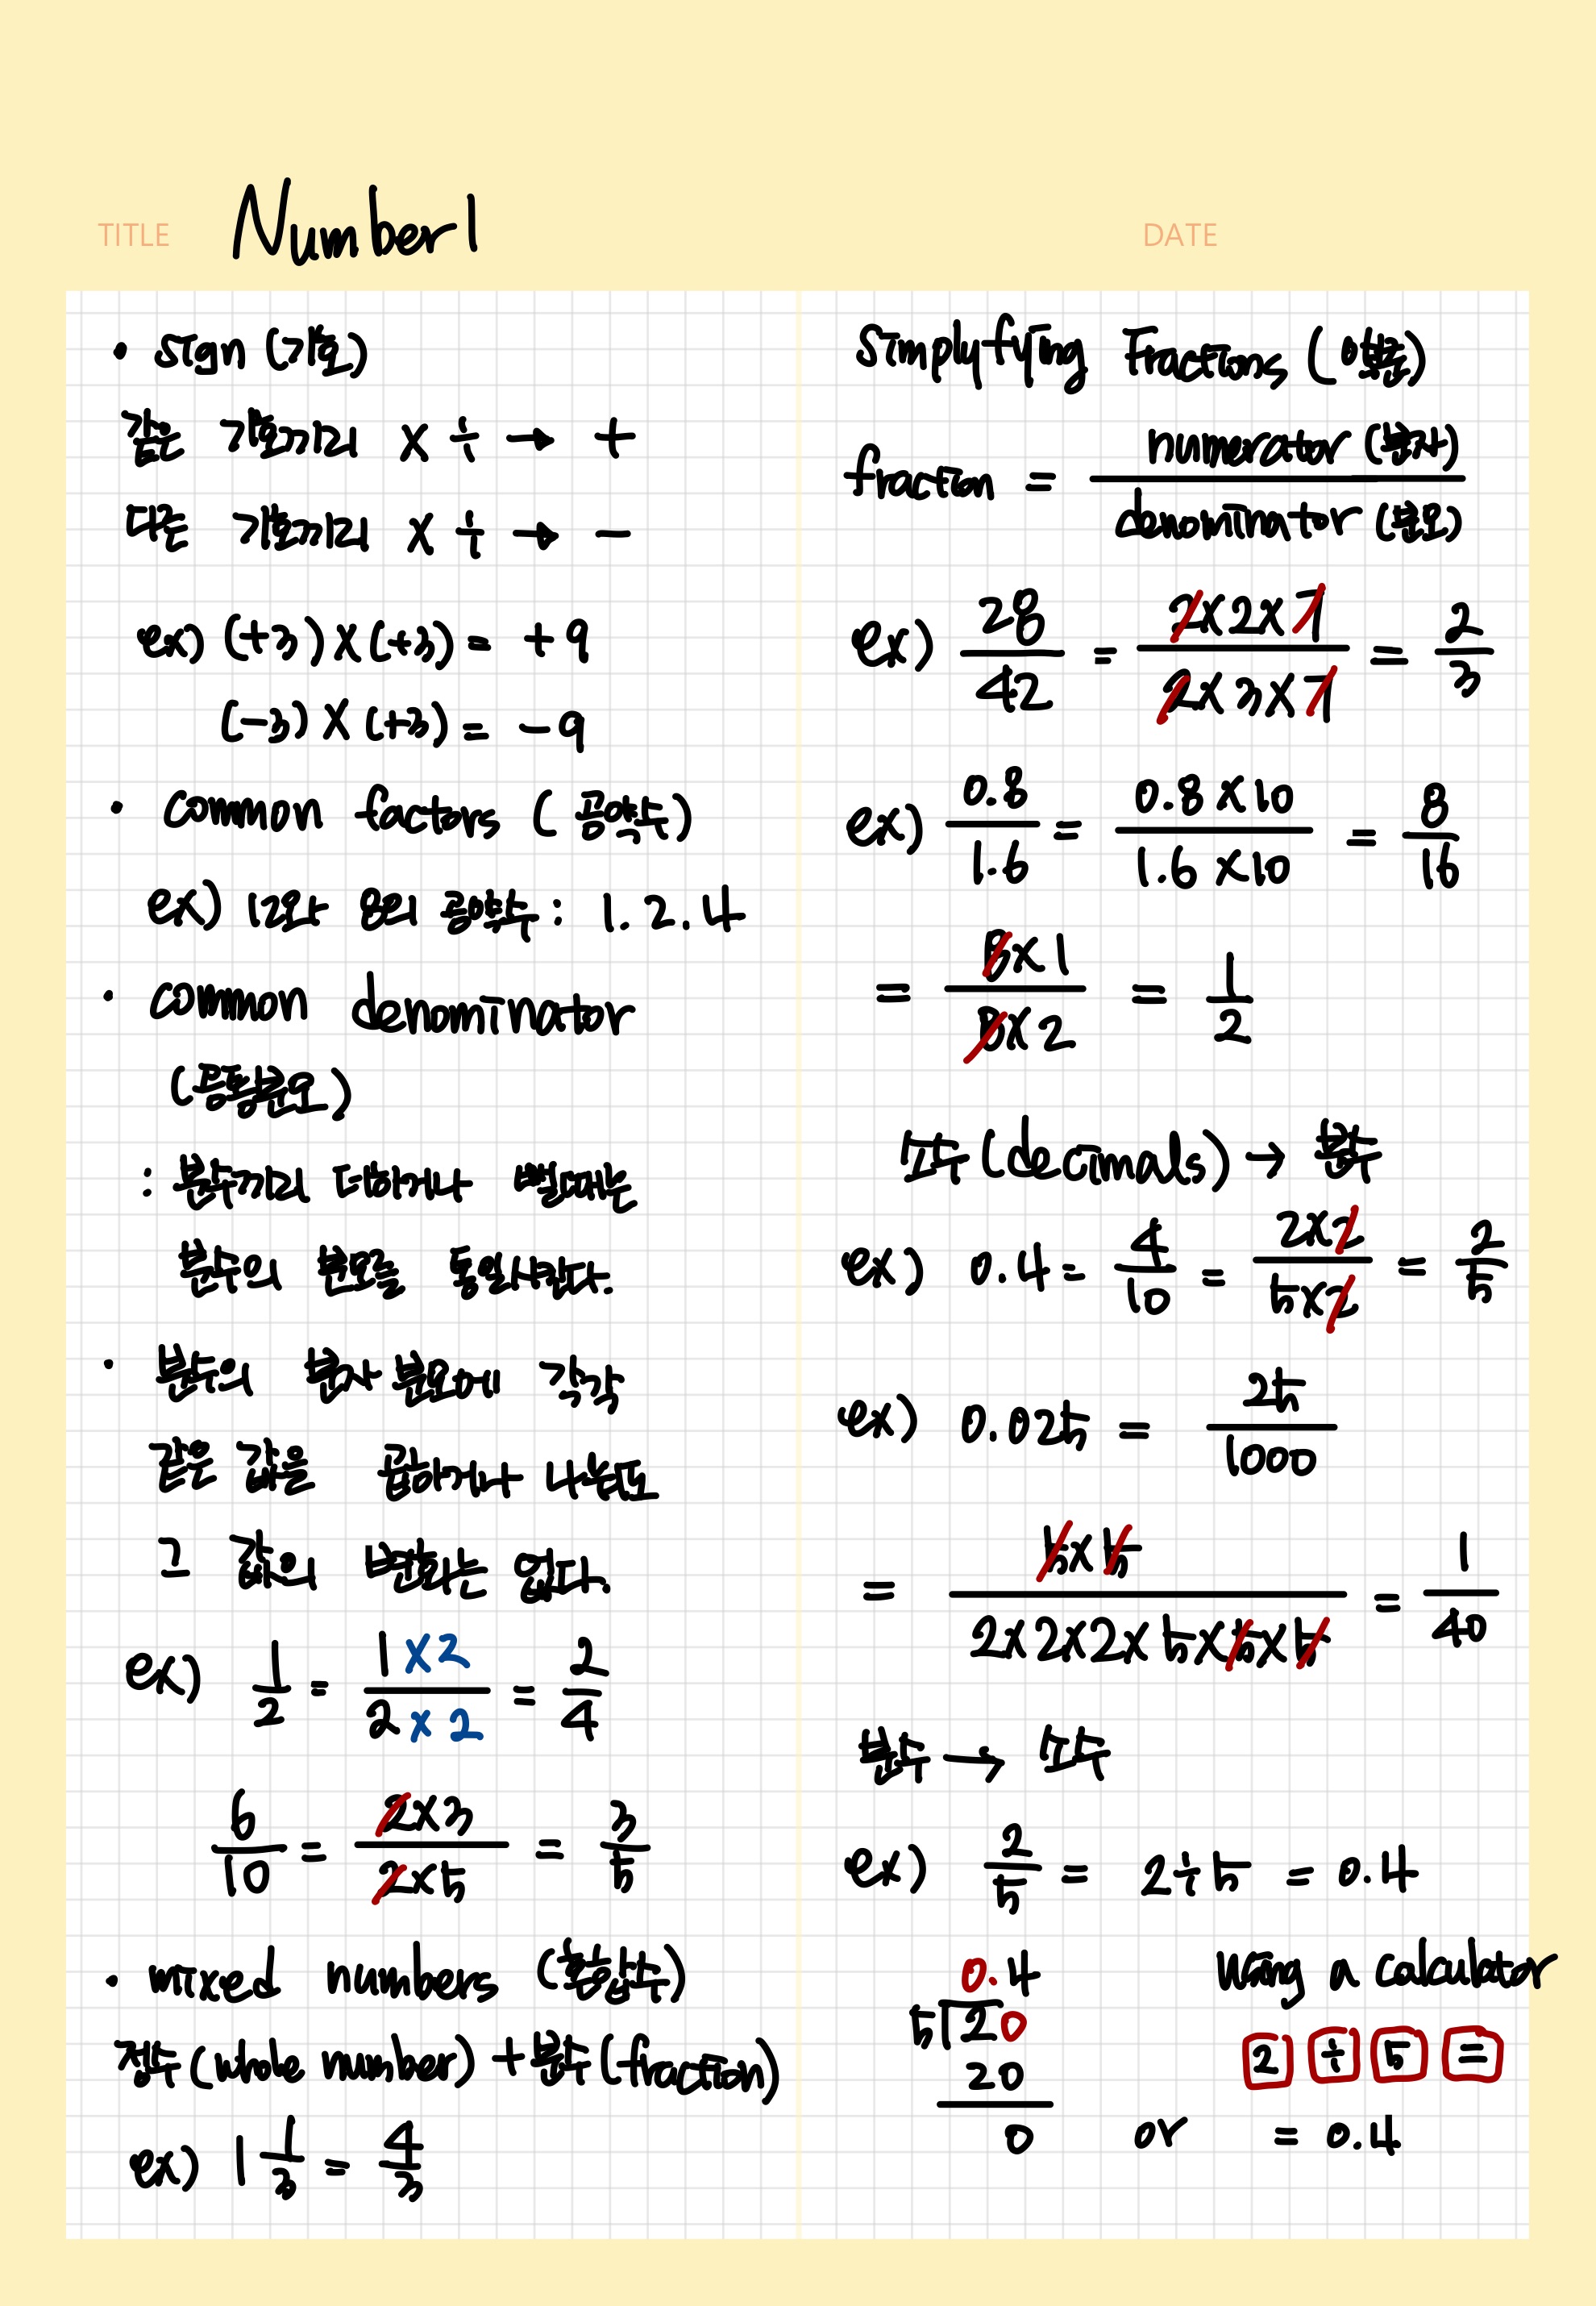 TITLE Number 1
DATE
• sign (기호)
같은 기호끼리 × ÷ → +
다른 기호끼리 × ÷ → −
ex) (+3) × (+3) = +9
(−3) × (+3) = −9
• common factors (공약수)
ex) 12와 8의 공약수 : 1. 2. 4
• common denominator
: 분수끼리 더하거나 뺄때는
분수의 분모를 통일시킨다.
• 분수의 분자 분모에 각각
같은 값을 곱하거나 나눠도
그 값의 변화는 없다.
ex) 1/2 = 1×2/2×2 = 2/4
6/10 = 2×3/2×5 = 3/5
• mixed numbers (혼합수)
정수 (whole number) + 분수 (fraction)
ex) 1 1/3 = 4/3
Simplyfying Fractions (약분)
fraction = numerator (분자) / denominator (분모)
ex) 28/42 = 2×2×7/2×3×7 = 2/3
ex) 0.8/1.6 = 0.8×10/1.6×10 = 8/16
= 8×1/8×2 = 1/2
소수 (decimals) → 분수
ex) 0.4 = 4/10 = 2×2/5×2 = 2/5
ex) 0.025 = 25/1000
= 5×5/2×2×2×5×5×5 = 1/40
분수 → 소수
ex) 2/5 = 2÷5 = 0.4
0.4
5 20
20
0
using a calculator
2 ÷ 5 =
or = 0.4